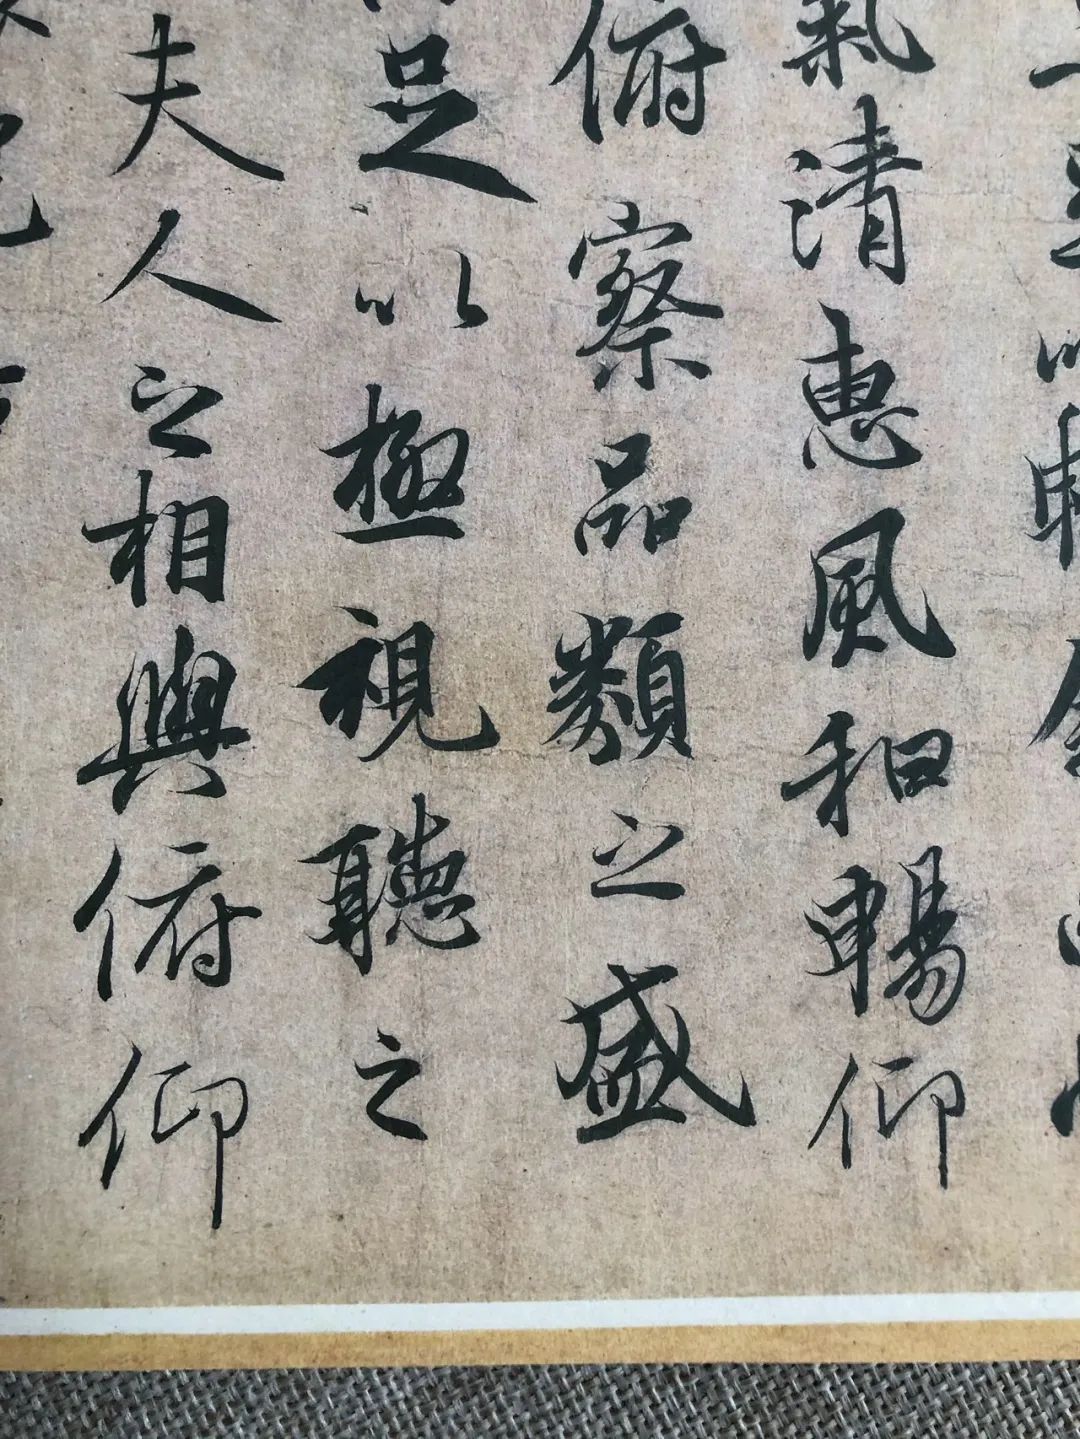 氣清惠風和暢仰
俯察品類之盛
足以極視聽之
夫人之相與俯仰